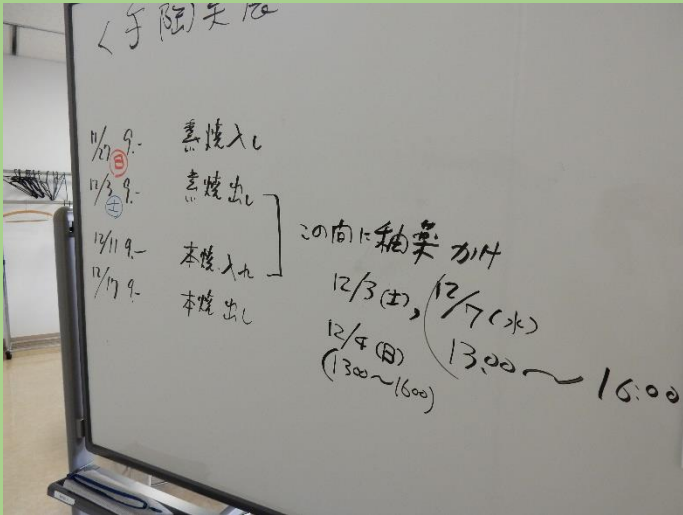 11/27 9.- 素焼入れ
日
12/3 9.- 素焼出し
土
12/11 9.- 本焼入れ
12/17 9.- 本焼出し
この間に釉薬カケ
12/3(土), 12/7(水)
13.00〜16:00
12/4(日)
(1300〜1600)